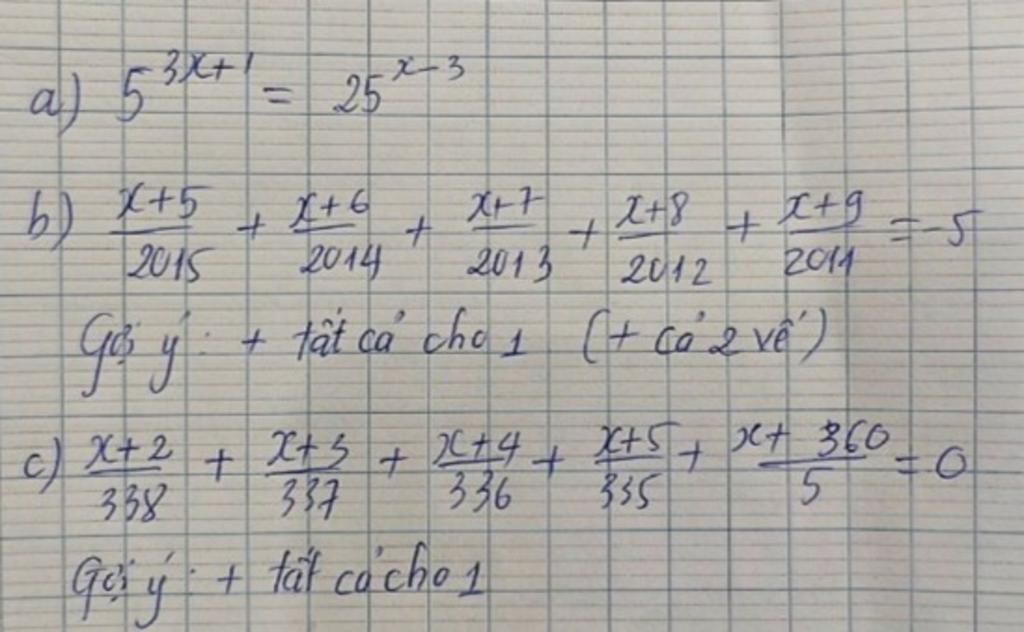 a) 5^{3x+1} = 25^{x-3}
b) \frac{x+5}{2015} + \frac{x+6}{2014} + \frac{x+7}{2013} + \frac{x+8}{2012} + \frac{x+9}{2011} = -5
Gợi ý: + tất cả cho 1 (+ cả 2 vế)
c) \frac{x+2}{338} + \frac{x+3}{337} + \frac{x+4}{336} + \frac{x+5}{335} + \frac{x+360}{5} = 0
Gợi ý: + tất cả cho 1